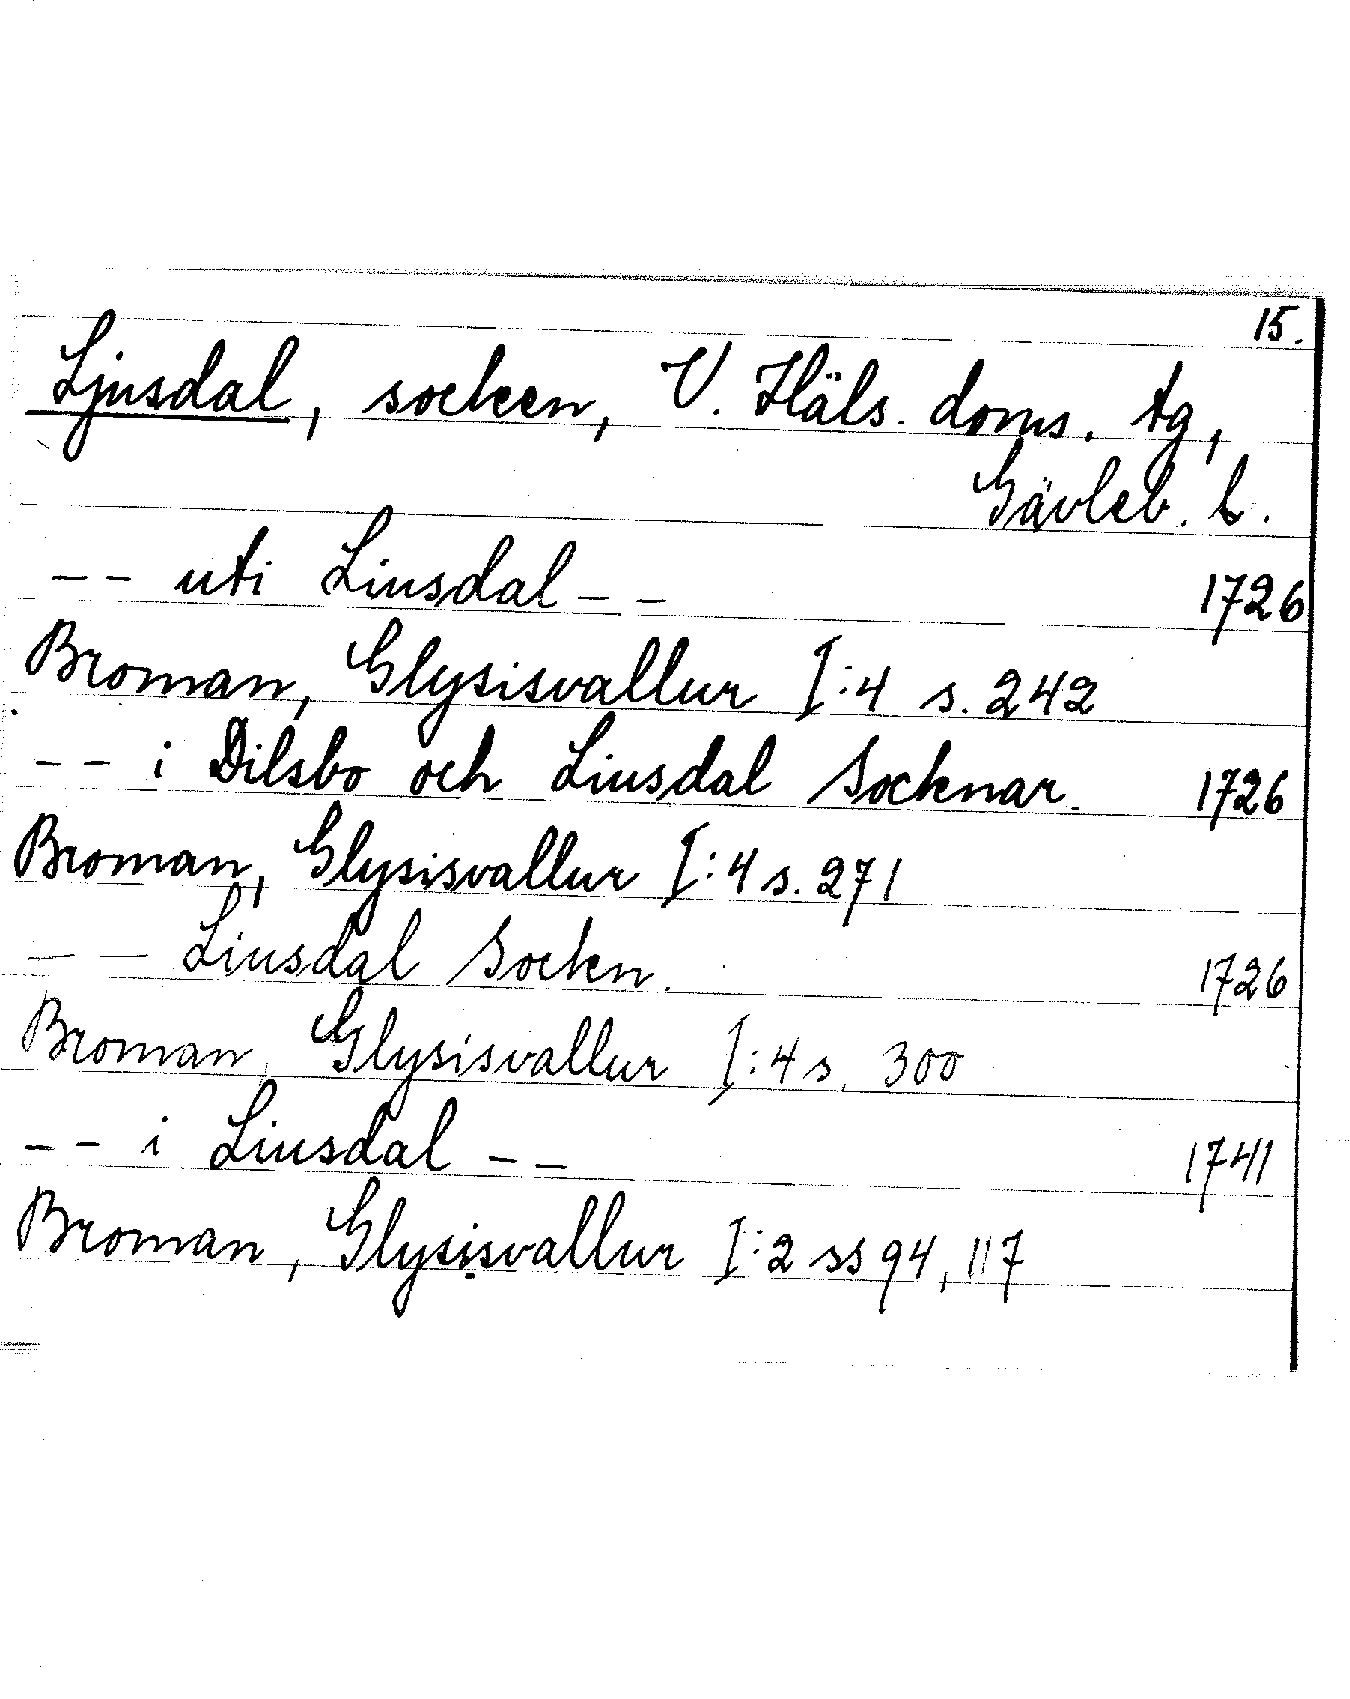 15.
Ljusdal, socken, V. Häls. doms. tg,
Gävleb. L.
-- uti Liusdal -- 1726
Broman, Glysisvallur I:4 s. 242
-- i Dilsbo och Liusdal Socknar. 1726
Broman, Glysisvallur I:4 s. 271
-- Liusdal Sockn. 1726
Broman, Glysisvallur I:4 s. 300
-- i Liusdal -- 1741
Broman, Glysisvallur I:2 ss 94, 117